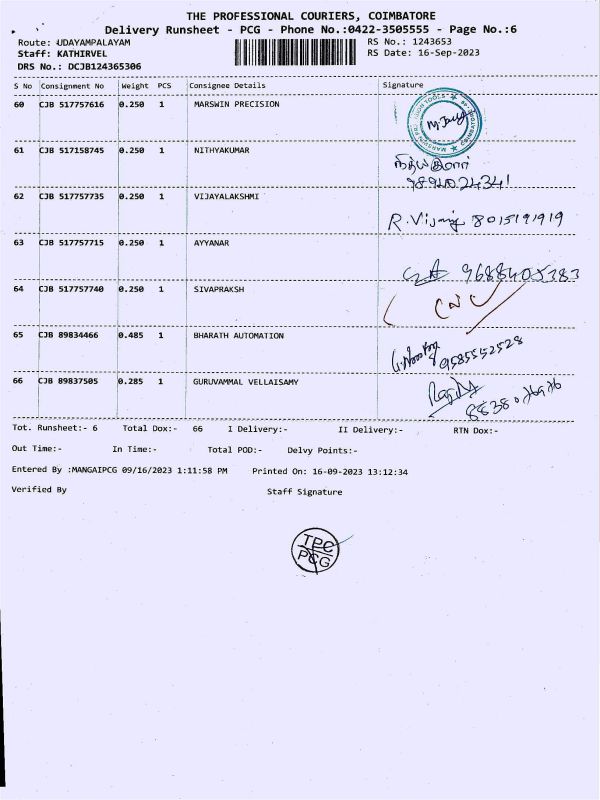 THE PROFESSIONAL COURIERS, COIMBATORE
Delivery Runsheet - PCG - Phone No.:0422-3505555 - Page No.:6
Route: UDAYAMPALAYAM RS No.: 1243653
Staff: KATHIRVEL RS Date: 16-Sep-2023
DRS No.: DCJB124365306
S No Consignment No Weight PCS Consignee Details Signature
60 CJB 517757616 0.250 1 MARSWIN PRECISION
61 CJB 517158745 0.250 1 NITHYAKUMAR நித்யகுமார்
9894024341
62 CJB 517757735 0.250 1 VIJAYALAKSHMI
R. 8015191919
63 CJB 517757715 0.250 1 AYYANAR
9688405383
64 CJB 517757740 0.250 1 SIVAPRAKSH
65 CJB 89834466 0.485 1 BHARATH AUTOMATION
9585552528
66 CJB 89837505 0.285 1 GURUVAMMAL VELLAISAMY
Tot. Runsheet:- 6 Total Dox:- 66 I Delivery:- II Delivery:- RTN Dox:-
Out Time:- In Time:- Total POD:- Delvy Points:-
Entered By :MANGAIPCG 09/16/2023 1:11:58 PM Printed On: 16-09-2023 13:12:34
Verified By Staff Signature
TPC
PCG